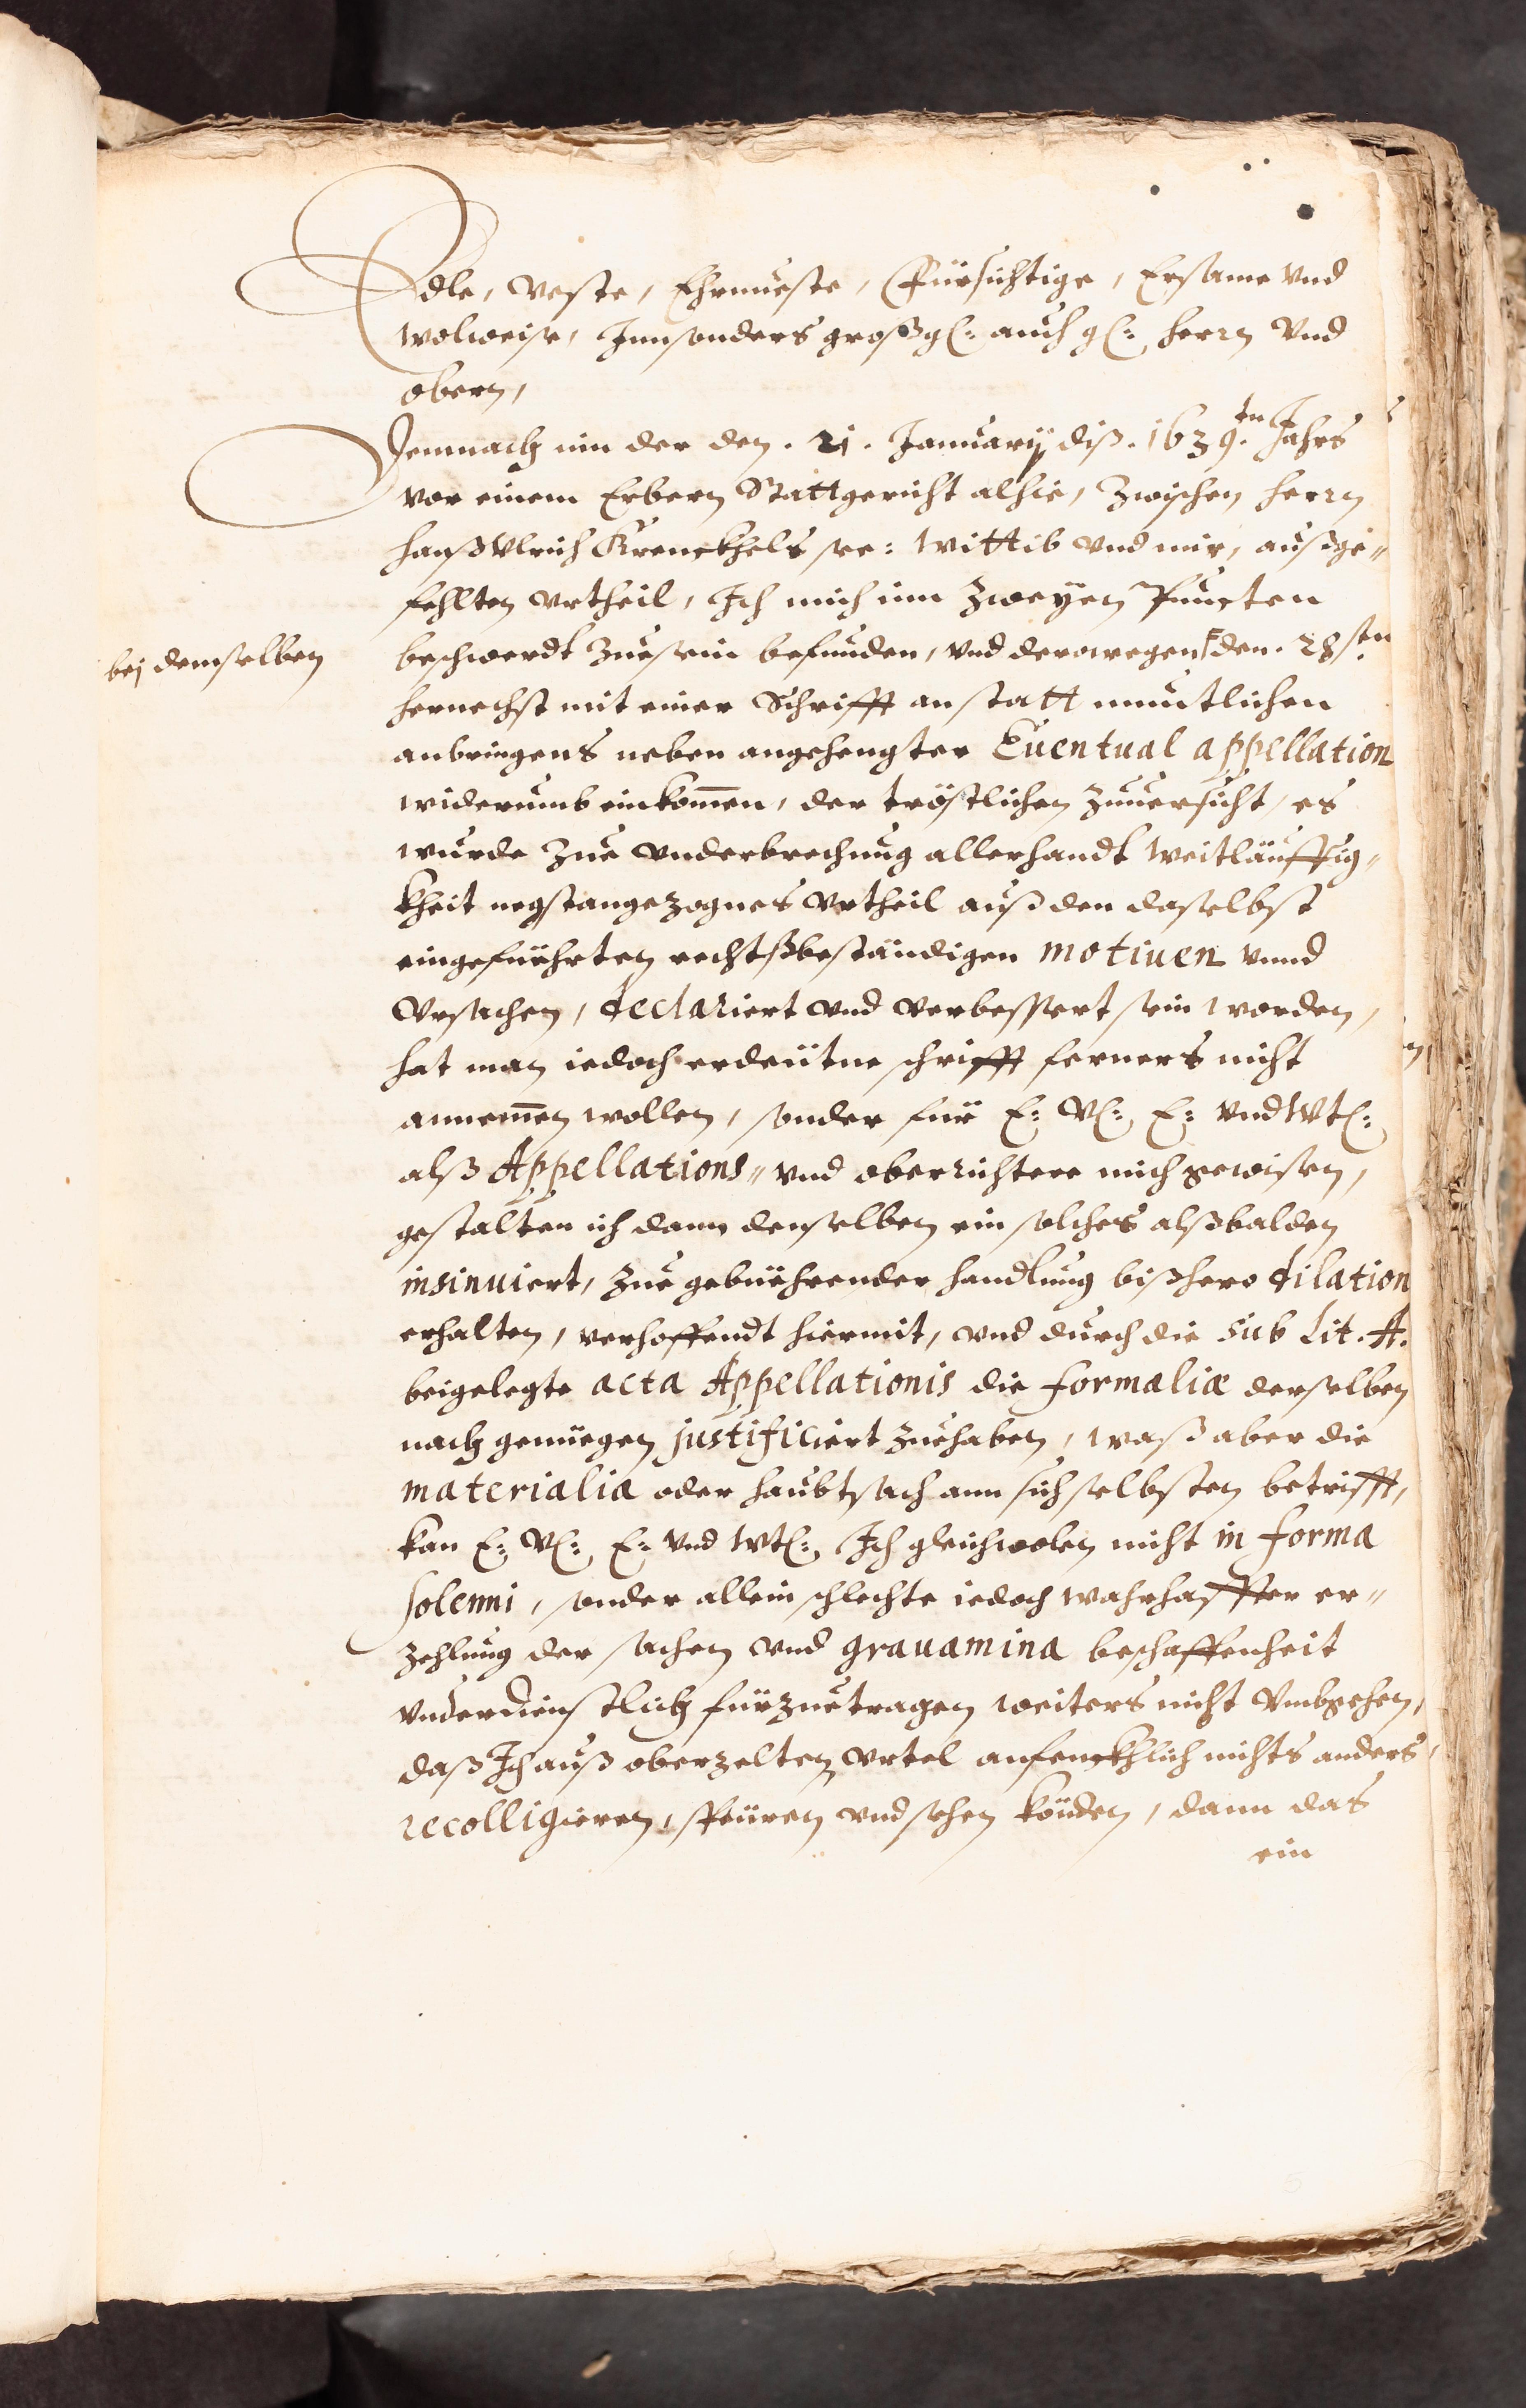 Edle, Veste, Ehrnueste, Fürsichtige, Ersame vnd
wolweise, Jnnsonders großg: auch g: herrn vnd
obern,
Demnach inn der den. 21. January diß. 1639.ten Jahrs
vor einem Erbern Stattgericht alhie, zwischen herrn
hanß Vlrich Krenckhels see: Wittib vnd mir, außge„
fehlten vrtheil, Jch mich inn zweyen Puncten
beschwerdt zue sein befunden, vnd derowegen den. 28sten
bej demselben
hernechst mit einer Schrifft an statt muntlichen
anbringens neben angehengter Euentual appellation
widerumb einkomen, der tröstlichen zuuersicht, es
wurde zue vnderbrechung allerhandt weitläuffig„
kheit negstangezognes vrtheil auß den daselbst
eingefüehrten rechtsbeständigen motiuen vnnd
Vrsachen, declariert vnd verbessert sein worden,
hat man iedoch erdeütne schrifft ferners nicht
annemen wollen, sonder für E: V: E: vnd Wt:
alß Appellations„ vnd oberrichtere mich gewisen,
gestalten ich dann denselben ein solches alßbalden
insinuiert, zue gebüehrender handlung bißhero dilation
erhalten, verhoffendt hiermit, vnd durch die sub Lit. A.
beigelegte acta Appellationis die formaliæ derselben
nach genüegen justificiert zuehaben, waß aber die
materialia oder haubtsach ann sich selbsten betrifft,
kan E: V: E: vnd Wt: Jch gleichwolen nicht in forma
solenni, sonder allein schlechte iedoch wahrhaffter er„
zehlung der sachen vnd grauamina beschaffenheit
vnderdienstlich fürzuetragen weiters nicht vmbgehen,
daß Jch auß oberzelten vrtel anfenckhlich nichts anders,
recolligieren, speüren vnd sehen könden, dann das
ein